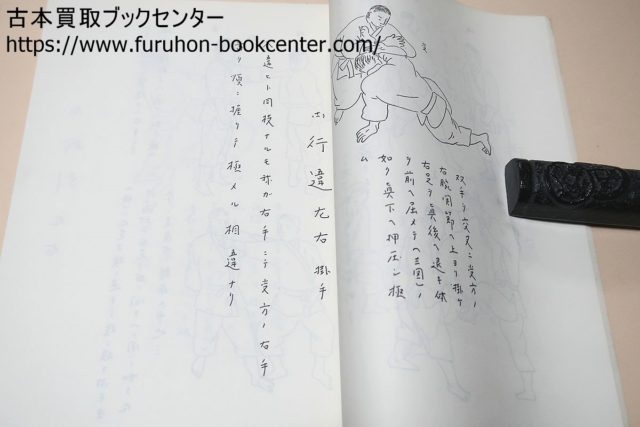 古本買取ブックセンター
https://www.furuhon-bookcenter.com/
双手ヲ交叉ニ受方ノ
右腕関節ヘ上ヨリ掛ケ
右足ヲ真後ヘ退キ体
ヲ前ヘ屈メテ(三図)ノ
如ク真下ヘ押圧シ極
ム
行違左右掛手
違ヒト同様ナルモ称が右手ニテ受方ノ右手
リ頂ニ握リテ極メル相違ナリ